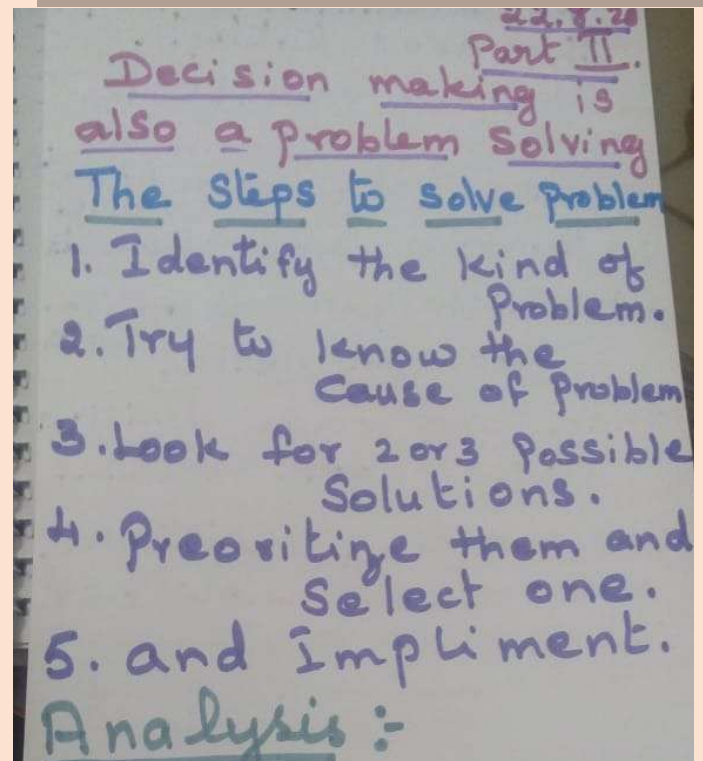 22.8.20
Part II.
Decision making is
also a problem solving
The steps to solve problem
1. Identify the kind of
problem.
2. Try to know the
cause of problem
3. Look for 2 or 3 possible
Solutions.
4. Preoritize them and
Select one.
5. and Impliment.
Analysis :-